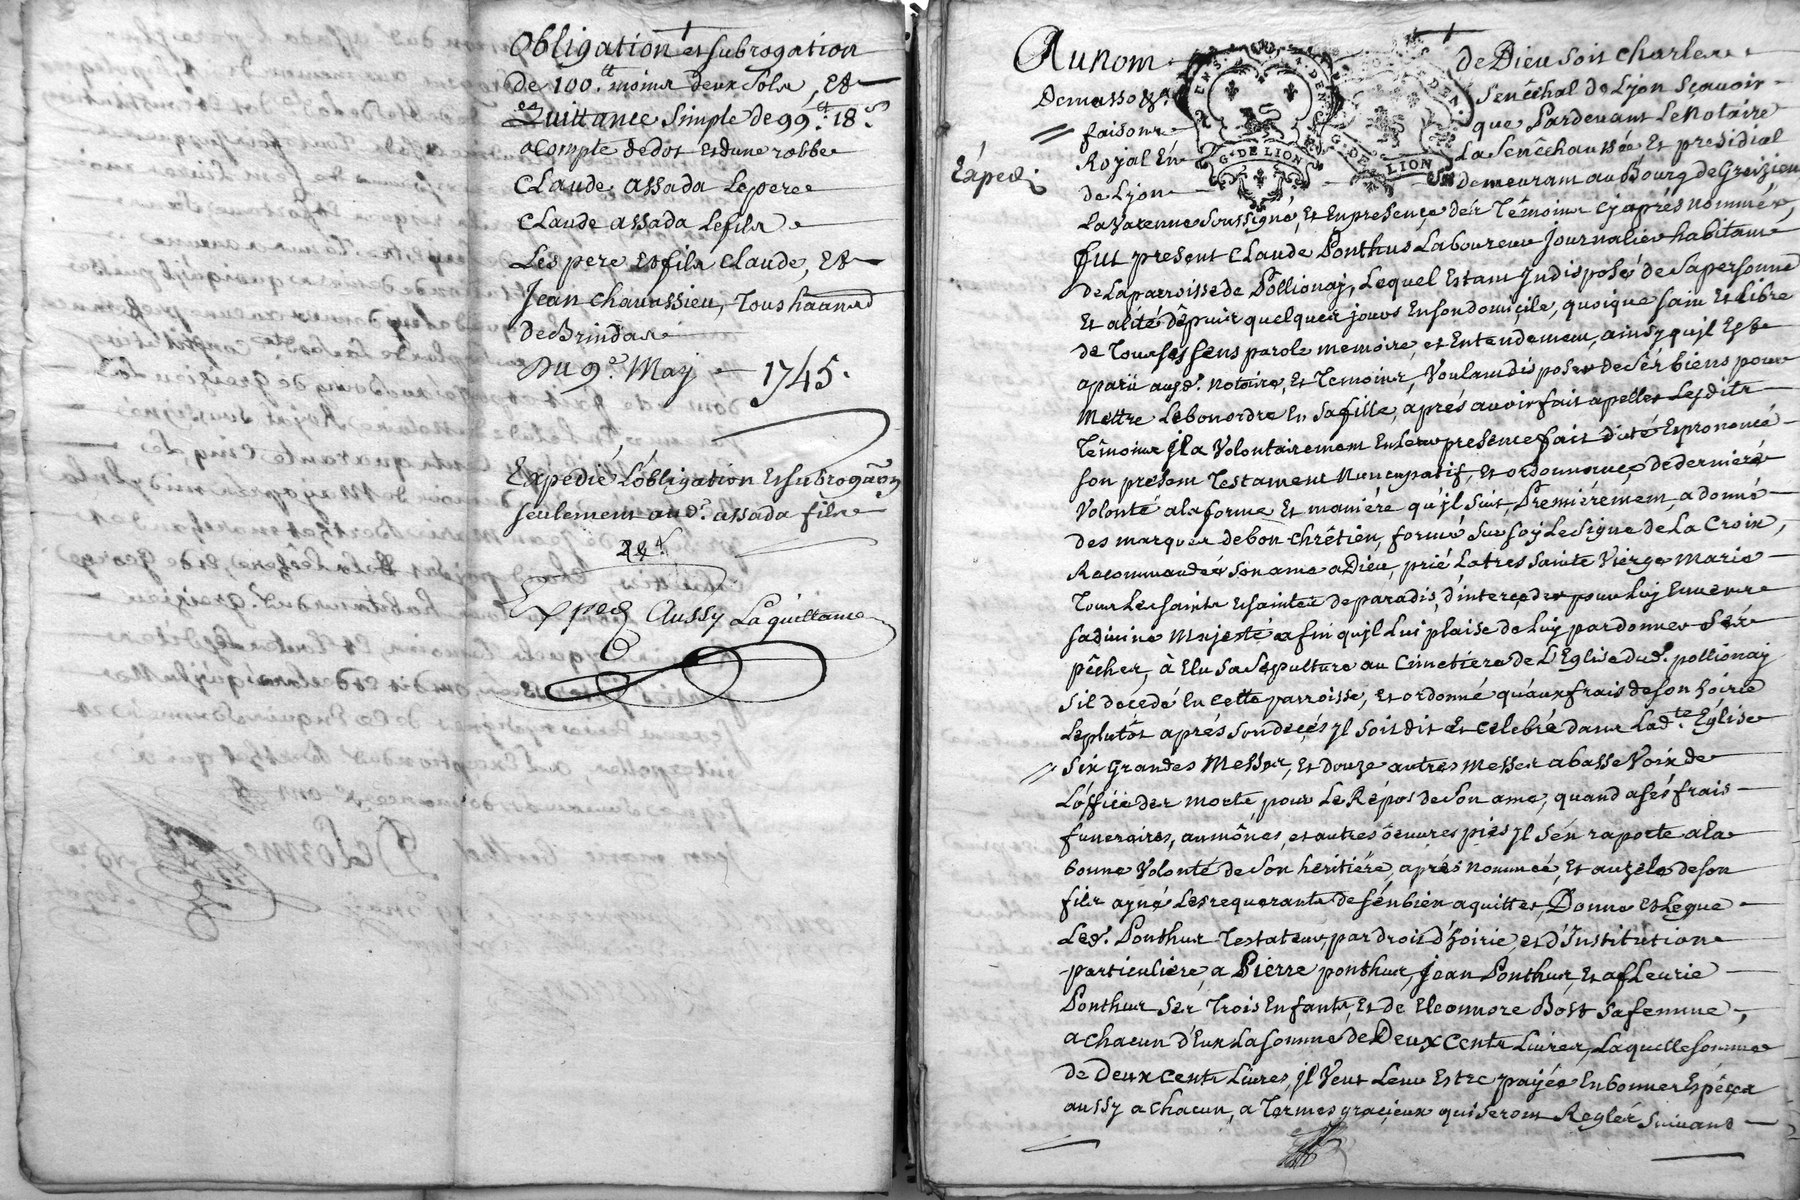 Obligation et subrogation
de 100.ᵗᵗ moins deux sols, Et
Quittance simple de 99.ᵗᵗ 18.ˢ
acompte de dot et d'une robbe
Claude assada Le pere
Claude assada Le fils
Les pere et fils Claude, Et
Jean chavassieu, Tous
de Brindas
Du 9.ᵉ May 1745.
Expedié L'obligation et subrogãon
seulement aud.ᵗ assada fils
Exped Aussy La quittance
Au nom de Dieu soit Charles
Demasso Senéchal de Lyon sçavoir
faisons que Pardevant Le Notaire
Exped.
Royal En La Senéchaussée Et presidial
de Lyon demeurant au Bourg de Greizieu
La Varenne soussigné, et En presençe des Témoins cy aprés nommés,
fut present Claude Ponthus Laboureur Journalier habitant
de La parroisse de Pollionay, Lequel Estant Indisposé de sa personne
Et alité dépuis quelques jours En son domicile, quoique sain Et Libre
de Tous ses sens parole memoire, et Entendement, ainsy qu'jl Est
aparü aud.ᵗ Notaire, Et Temoins, Voulant disposer de sés biens pour
Mettre Le bon ordre En sa fille, aprés avoir fait apeller Lesdits
Témoins Jl a Volontairement En Leur presence fait dicté Et prononcé
son present Testament Nuncupatif, Et ordonnançe de derniere
Volonté a la forme Et maniére qu'jl suit, Premiérement, a donné
des marques de bon Chrêtien, formé sur soy Le signe de La Croix,
Recommandés son ame a Dieu, prié La tres sainte Vierge Marie
Tous Les saints Et saintes de paradis, d'interçeder pour Luy Envers
sa divine Majesté afin qu'jl Lui plaise de Luy pardonner sés
pêchez, à Elu sa sepulture au Cimetiére de L'Eglise dud.ᵗ pollionay
s'il decede En Cette parroisse, Et ordonné qu'aux frais de son hoirie
Le plutôt aprés son deçés Jl soit dit Et celebré dans Lad.ᵗᵉ Eglise
six Grandes Messes, Et Douze autres Messes a basse Voix de
L'office des morts, pour Le Répos de son ame, quand a sés frais
funeraires, aumônes, et autres oeuvres pies Jl s'en raporte a la
bonne Volonté de son héritiére, aprés nommée, Et au zele de son
fils ayné Les requerants de s'en bien aquitter, Donne Et Legue
Led.ᵗ Ponthus Testateur, par droit d'hoirie, et d'Institution
particuliére, a Pierre ponthus, Jean Ponthus, Et a fleurie
Ponthus ses Trois Enfants, Et de Eleonnore Bost sa femme,
a chacun d'Eux La somme de Deux Cents Livres, Laquelle somme
de Deux Cents Livres, jl Veut Leur Estre payée En bonnes Espéces
aussy a chacun, a Termes graçieux qui seront Reglés suivant
G.ᵗ DE LION
G.ᵗ DE LION